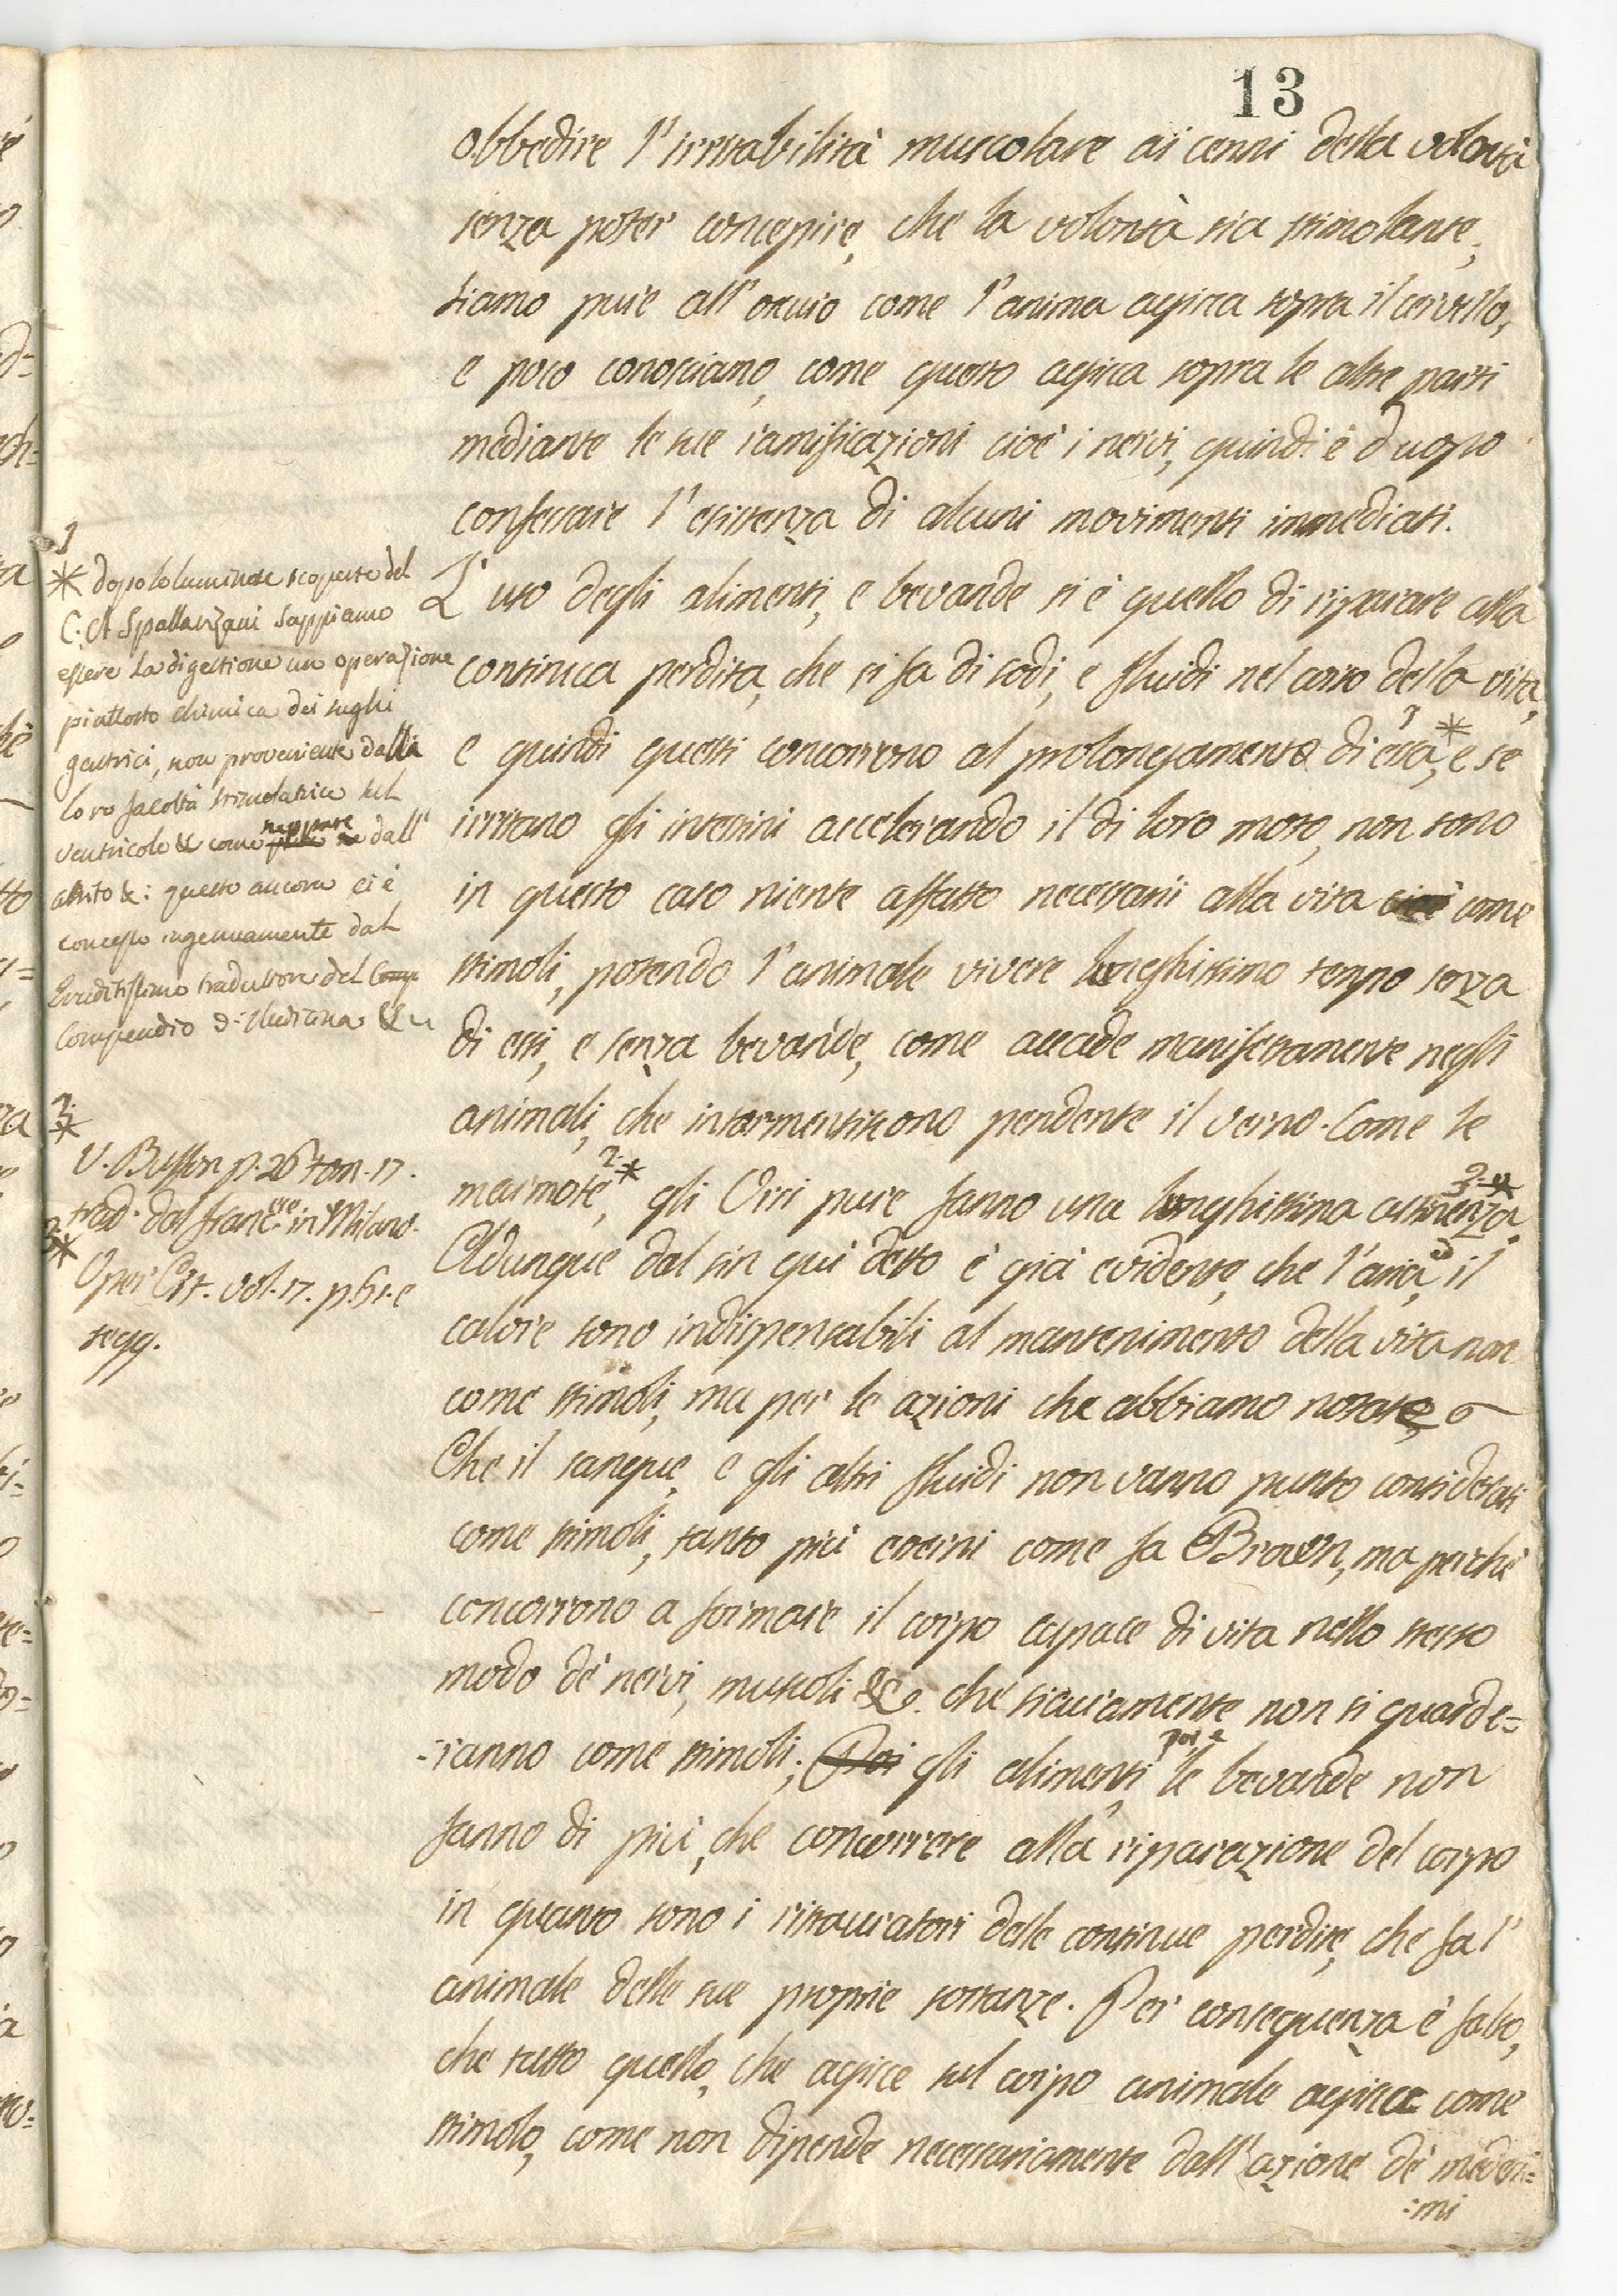 13
obbedire l'irritabilità muscolare ai cenni della volontà
senza poter concepire, che la volontà sia stimolante,
siamo pure all'oscuro come l'anima agisca sopra il cervello,
e poco conosciamo, come questo agisca sopra le altre parti
mediante le sue ramificazioni cioè i nervi, quindi è d'uopo
confessare l'esistenza di alcuni movimenti immediati.
L'uso degli alimenti, e bevande si è quello di riparare alla
continua perdita, che si fa di sodi, e fluidi nel corso della vita,
e quindi questi concorrono al prolongamento di essa, 1* e se
irritano gli intestini accelerando il di loro moto, non sono
in questo caso niente affatto necessarii alla vita cioè come
stimoli, potendo l'animale vivere lunghissimo tempo senza
di essi, e senza bevande, come accade manifestamente negli
animali, che intormentiscono pendente il verno. Come le
marmote, 2.* gli Orsi pure fanno una lunghissima astinenza 3.*.
Adunque dal sin qui detto è già evidente, che l'aria, ed il
calore sono indispensabili al mantenimento della vita non
come stimoli, ma per le azioni che abbiamo notate,
Che il sangue, e gli altri fluidi non vanno punto considerati
come stimoli, tanto più esterni come fa Brown, ma perchè
concorrono a formare il corpo capace di vita nello stesso
modo de' nervi, muscoli &c. che sicuramente non si guarde=
-ranno come stimoli; Poi gli alimenti poi, e le bevande non
fanno di più, che concorrere alla riparazione del corpo
in quanto sono i ristauratori delle continue perdite, che fa l'
animale delle sue proprie sostanze. Per conseguenza è falso,
che tutto quello, che agisce sul corpo animale agisca come
stimolo, come non dipende necessariamente dall'azione de' medesi=
:mi
1
* dopo le luminose scoperte del
C. A Spallanzani sappiamo
essere la digestione un operazione
piuttosto chimica dei sughi
gastrici, non proveniente dalla
loro facoltà stimolatrice sul
ventricolo &c come neppure dall'
attrito &c: questo ancora ci è
concesso ingenuamente dal
Eruditissimo traduttore del Comp
Compendio di Medicina &c
2.
*
V. Buffon p. 26 tom. 17.
trad. dal franc.ese in Milano.
3.
*
Oper Est. vol. 17. p. 61. e
segg.